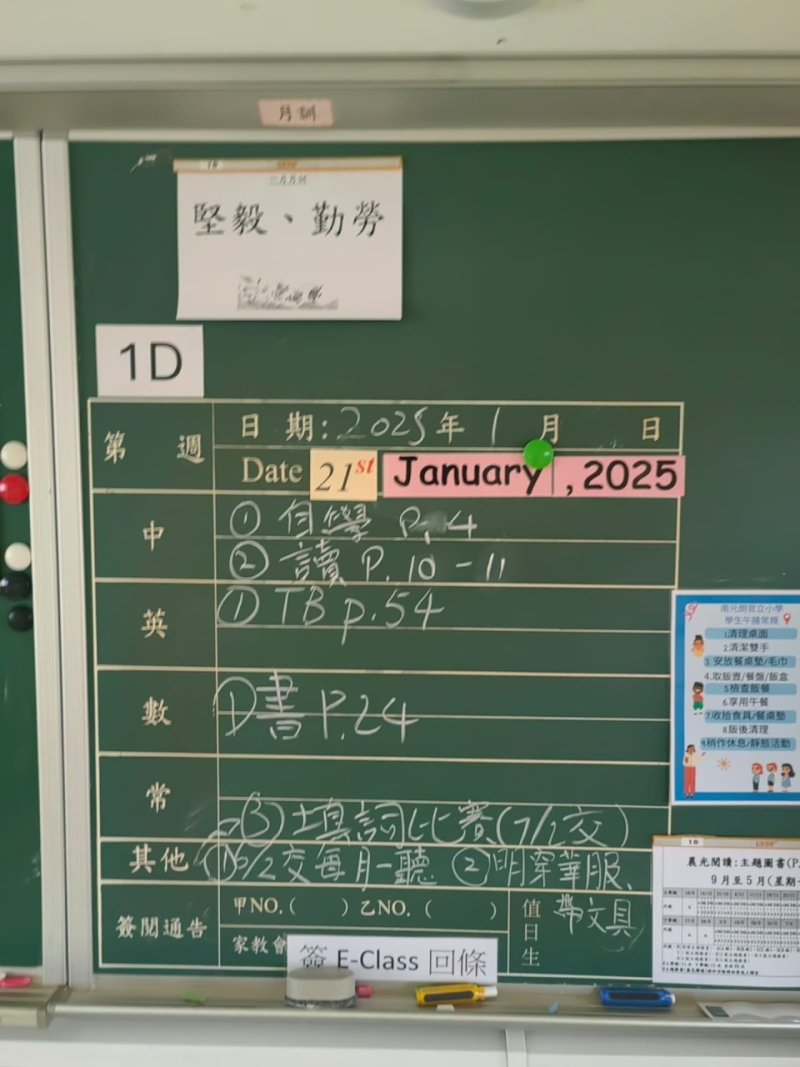 月訓
堅毅、勤勞
1D
第 週
日 期：2025年 1 月 日
Date 21st January, 2025
中
① 自學 P.4
② 讀 P.10-11
英
① TB p.54
數
① 書 P.24
常
③ 填詞比賽(7/2交)
其他
/2交每月一聽 ② 明穿華服、
帶文具
簽閱通告
甲NO.( ) 乙NO.( )
值日生
家教會
簽 E-Class 回條
南元朗官立小學
學生午膳常規
1.清理桌面
2.清潔雙手
3.安放餐桌墊/毛巾
4.取飯壺/餐盤/飯盒
5.檢查飯餐
6.享用午餐
7.收拾食具/餐桌墊
8.飯後清理
9.稍作休息/靜態活動
晨光閱讀：主題圖書(P.
9月至5月(星期